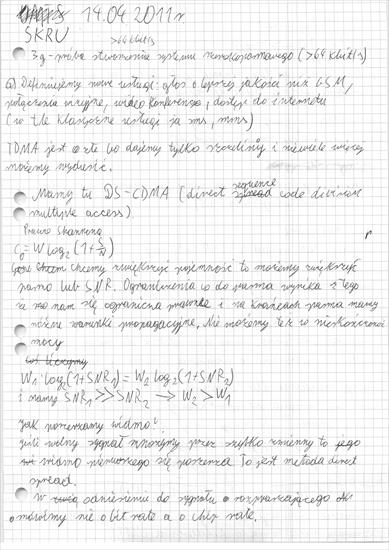 14.04.2011r
SKRU >64 kbit/s
3g - próba stworzenia systemu szerokopasmowego (>64 kbit/s)
a) Definiujemy nowe usługi: głos o lepszej jakości niż GSM,
połączenia wizyjne, wideo konferencje, dostęp do internetu
(w tle klasyczne usługi ja sms, mms)
TDMA jest złe bo dajemy tylko szczeliny i niewiele więcej
możemy wydusić.
Mamy tu DS-CDMA (direct sequence code division
multiple access)
Prawo Shannona
C0 = W log2(1+S/N)
Chcemy zwiększyć pojemność to możemy zwiększyć
pasmo lub SNR. Ograniczenia co do pasma wynika z tego
że nam się ogranicza prawnie i na krańcach pasma mamy
różne warunki propagacyjne. Nie możemy też w nieskończoność
mocy
W1·log2(1+SNR1) = W2 log2(1+SNR2)
i mamy SNR1 >> SNR2 → W2 > W1
Jak poszerzamy widmo?
jeśli wolny sygnał mnożymy przez szybko zmienny to jego
widmo pierwszego się poszerza To jest metoda direct
spread.
w odniesieniu do sygnału rozpraszającego
mówimy nie o bit rate a o chip rate.